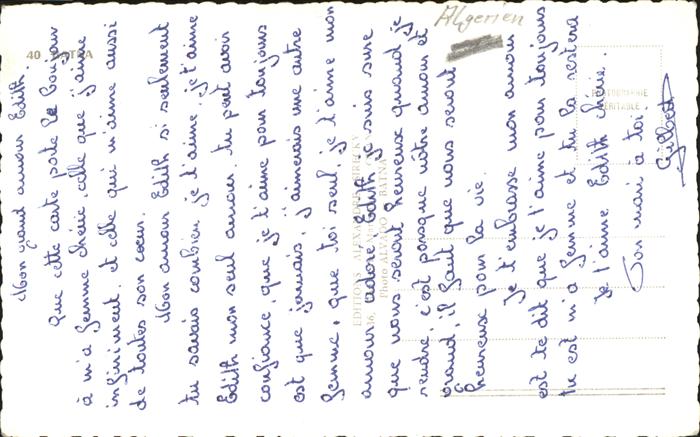 Algerien
40 BATNA
PHOTOGRAPHIE
VÉRITABLE
EDITIONS ALEXANDRE
Photo ALVADO BATNA
Mon grand amour Edith.
Que cette carte porte le bonjour
à m'a femme chérie, celle que j'aime
infiniment, et celle qui m'aime aussi
de toutes son coeur.
Mon amour Edith si seulement
tu savais combien je t'aime, je t'aime
Edith mon seul amour, tu peut avoir
confiance, que je t'aime pour toujours
est que jamais, j'aimerais une autre
femme, que toi seul, je t'aime mon
amour adoré Edith, je suis sure
que nous seront heureux quand je
rendre, c'est parsque nôtre amour et
grand, il faut que nous seront
heureux pour la vie.
Je t'embrasse mon amour
est te dit que je t'aime pour toujours
tu est m'a femme et tu la restera
Je t'aime Edith chérie.
Ton mari a toi.
Gilbert